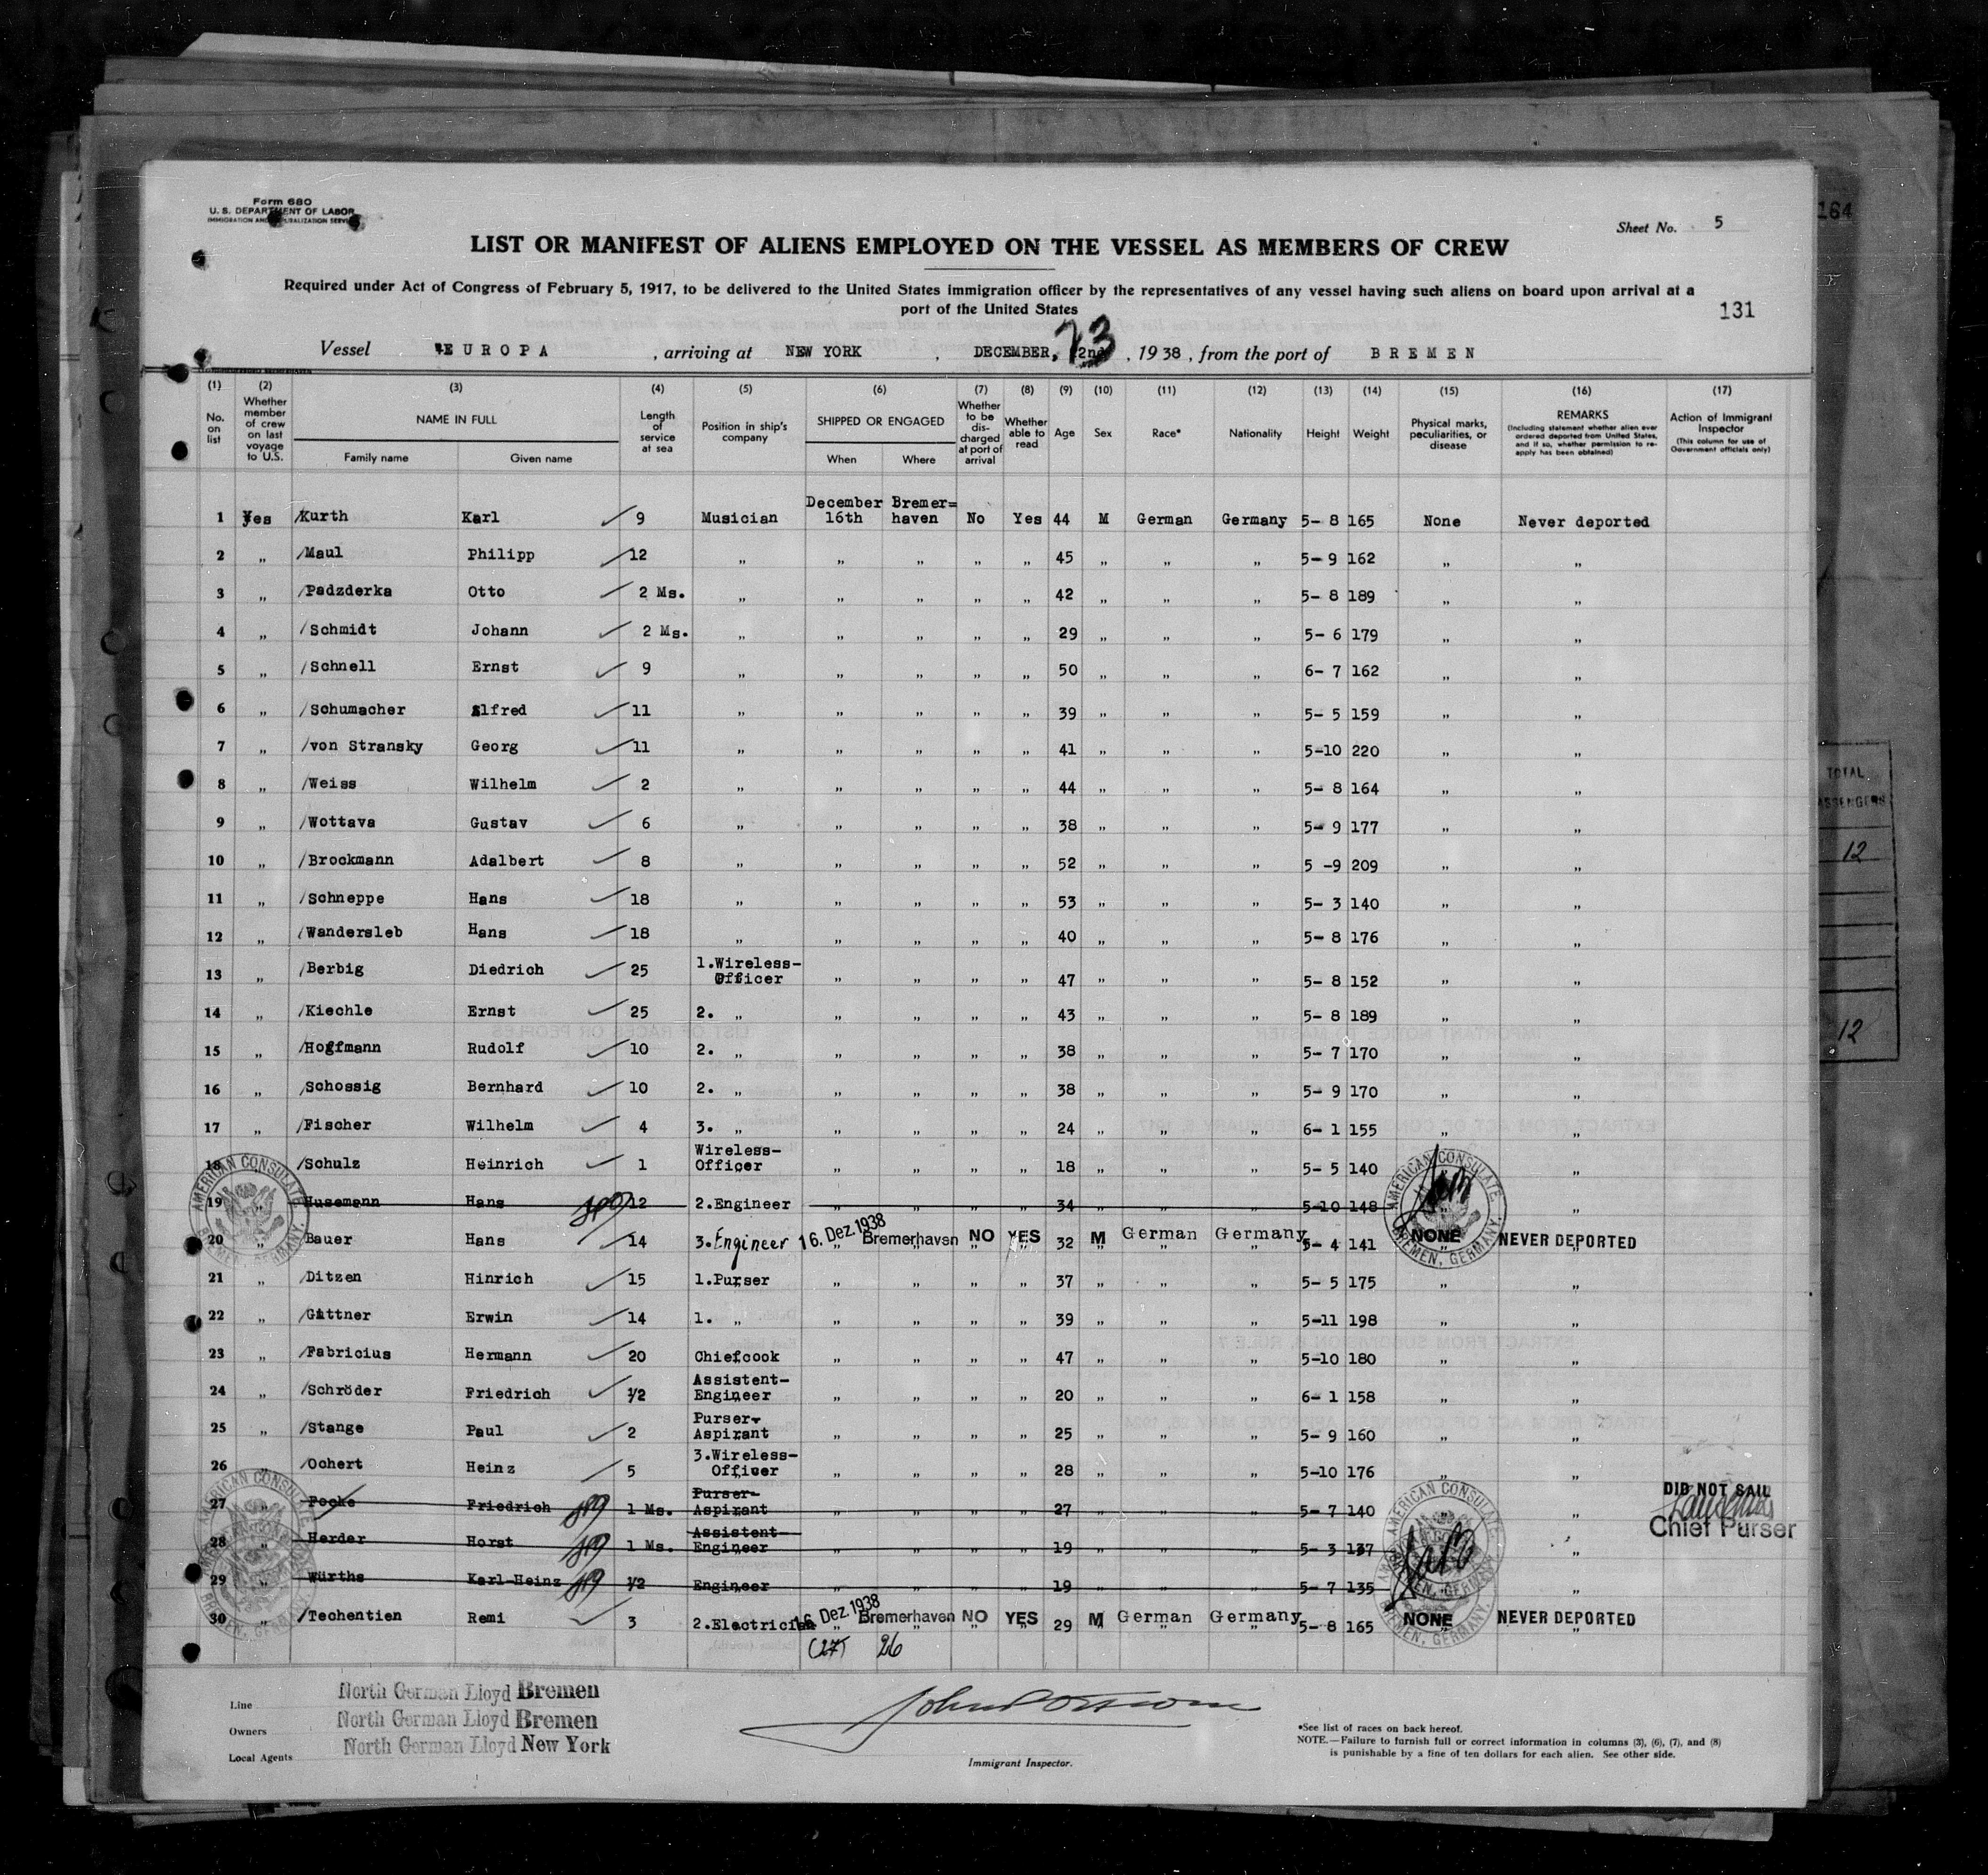 Form 680
U. S. DEPARTMENT OF LABOR
IMMIGRATION AND NATURALIZATION SERVICE
Sheet No. 5
LIST OR MANIFEST OF ALIENS EMPLOYED ON THE VESSEL AS MEMBERS OF CREW
Required under Act of Congress of February 5, 1917, to be delivered to the United States immigration officer by the representatives of any vessel having such aliens on board upon arrival at a
port of the United States
131
164
Vessel EUROPA , arriving at NEW YORK , DECEMBER, 22nd 23 , 1938 , from the port of BREMEN
(1) (2) (3) (4) (5) (6) (7) (8) (9) (10) (11) (12) (13) (14) (15) (16) (17)
No. on list
Whether member of crew on last voyage to U.S.
NAME IN FULL
Family name Given name
Length of service at sea
Position in ship's company
SHIPPED OR ENGAGED
When Where
Whether to be discharged at port of arrival
Whether able to read
Age
Sex
Race*
Nationality
Height
Weight
Physical marks, peculiarities, or disease
REMARKS
(Including statement whether alien ever ordered deported from United States, and if so, whether permission to reapply has been obtained)
Action of Immigrant Inspector
(This column for use of Government officials only)
1 Yes Kurth Karl 9 Musician December 16th Bremer=haven No Yes 44 M German Germany 5- 8 165 None Never deported
2 „ Maul Philipp 12 „ „ „ „ „ 45 „ „ „ 5- 9 162 „ „
3 „ Padzderka Otto 2 Ms. „ „ „ „ „ 42 „ „ „ 5- 8 189 „ „
4 „ Schmidt Johann 2 Ms. „ „ „ „ „ 29 „ „ „ 5- 6 179 „ „
5 „ Schnell Ernst 9 „ „ „ „ „ 50 „ „ „ 6- 7 162 „ „
6 „ Schumacher Alfred 11 „ „ „ „ „ 39 „ „ „ 5- 5 159 „ „
7 „ von Stransky Georg 11 „ „ „ „ „ 41 „ „ „ 5-10 220 „ „
8 „ Weiss Wilhelm 2 „ „ „ „ „ 44 „ „ „ 5- 8 164 „ „
9 „ Wottava Gustav 6 „ „ „ „ „ 38 „ „ „ 5- 9 177 „ „
10 „ Brockmann Adalbert 8 „ „ „ „ „ 52 „ „ „ 5 -9 209 „ „
11 „ Schneppe Hans 18 „ „ „ „ „ 53 „ „ „ 5- 3 140 „ „
12 „ Wandersleb Hans 18 „ „ „ „ „ 40 „ „ „ 5- 8 176 „ „
13 „ Berbig Diedrich 25 1.Wireless-Officer „ „ „ „ 47 „ „ „ 5- 8 152 „ „
14 „ Kiechle Ernst 25 2. „ „ „ „ „ 43 „ „ „ 5- 8 189 „ „
15 „ Hoffmann Rudolf 10 2. „ „ „ „ „ 38 „ „ „ 5- 7 170 „ „
16 „ Schossig Bernhard 10 2. „ „ „ „ „ 38 „ „ „ 5- 9 170 „ „
17 „ Fischer Wilhelm 4 3. „ „ „ „ „ 24 „ „ „ 6- 1 155 „ „
18 „ Schulz Heinrich 1 Wireless-Officer „ „ „ „ 18 „ „ „ 5- 5 140 „ „
19 „ Husemann Hans 12 2.Engineer „ „ „ „ 34 „ „ „ 5-10 148 „ „
20 „ Bauer Hans 14 3.Engineer 16. Dez. 1938 Bremerhaven NO YES 32 M German Germany 5- 4 141 NONE NEVER DEPORTED
21 „ Ditzen Hinrich 15 1.Purser „ „ „ „ 37 „ „ „ 5- 5 175 „ „
22 „ Gättner Erwin 14 1. „ „ „ „ „ 39 „ „ „ 5-11 198 „ „
23 „ Fabricius Hermann 20 Chiefcook „ „ „ „ 47 „ „ „ 5-10 180 „ „
24 „ Schröder Friedrich 1/2 Assistent-Engineer „ „ „ „ 20 „ „ „ 6- 1 158 „ „
25 „ Stange Paul 2 Purser-Aspirant „ „ „ „ 25 „ „ „ 5- 9 160 „ „
26 „ Ochert Heinz 5 3.Wireless-Officer „ „ „ „ 28 „ „ „ 5-10 176 „ „
27 „ Focke Friedrich 1 Ms. Purser-Aspirant „ „ „ „ 27 „ „ „ 5- 7 140 „ „ DID NOT SAIL
Chief Purser
28 „ Herder Horst 1 Ms. Assistent-Engineer „ „ „ „ 19 „ „ „ 5- 3 137 „ „
29 „ Würths Karl-Heinz 1/2 Engineer „ „ „ „ 19 „ „ „ 5- 7 135 „ „
30 „ Techentien Remi 3 2.Electrician 16 Dez. 1938 Bremerhaven NO YES 29 M German Germany 5- 8 165 NONE NEVER DEPORTED
(27) 26
AMERICAN CONSULATE
BREMEN, GERMANY.
AMERICAN CONSULATE
BREMEN, GERMANY.
AMERICAN CONSULATE
BREMEN, GERMANY.
AMERICAN CONSULATE
BREMEN, GERMANY.
TOTAL
PASSENGERS
12
12
Line North German Lloyd Bremen
Owners North German Lloyd Bremen
Local Agents North German Lloyd New York
Immigrant Inspector.
*See list of races on back hereof.
NOTE.—Failure to furnish full or correct information in columns (3), (6), (7), and (8)
is punishable by a fine of ten dollars for each alien. See other side.